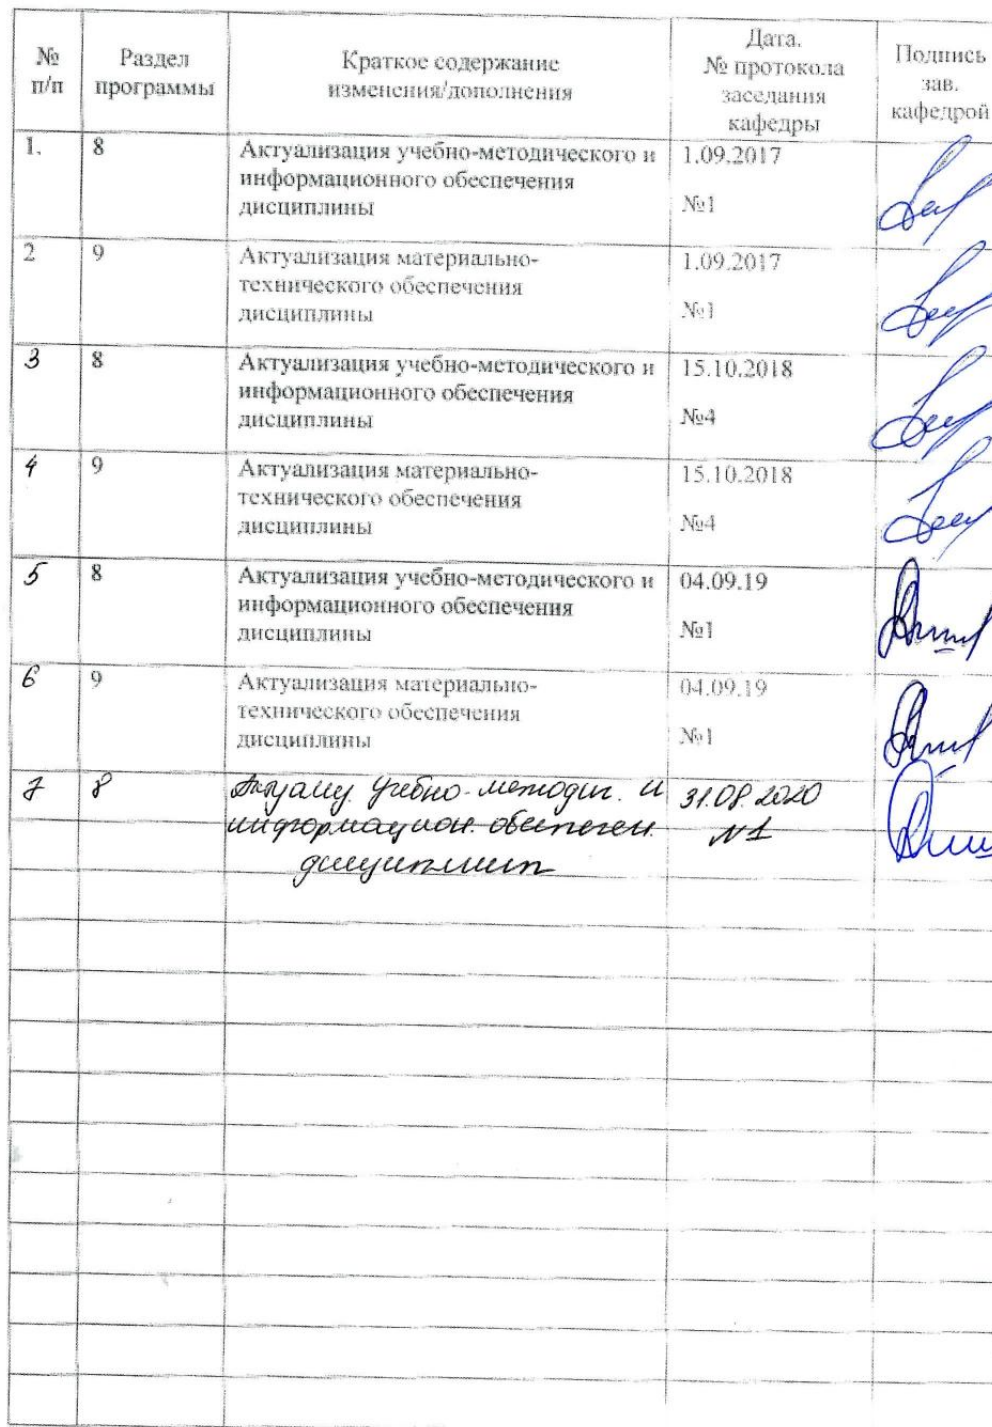 №
п/п
Раздел
программы
Краткое содержание
изменения/дополнения
Дата.
№ протокола
заседания
кафедры
Подпись
зав.
кафедрой
1.
8
Актуализация учебно-методического и
информационного обеспечения
дисциплины
1.09.2017
№1
2
9
Актуализация материально-
технического обеспечения
дисциплины
1.09.2017
№1
3
8
Актуализация учебно-методического и
информационного обеспечения
дисциплины
15.10.2018
№4
4
9
Актуализация материально-
технического обеспечения
дисциплины
15.10.2018
№4
5
8
Актуализация учебно-методического и
информационного обеспечения
дисциплины
04.09.19
№1
6
9
Актуализация материально-
технического обеспечения
дисциплины
04.09.19
№1
7
8
учебно-методич. и
информацион. обеспечен.
дисциплин
31.08.2020
№1